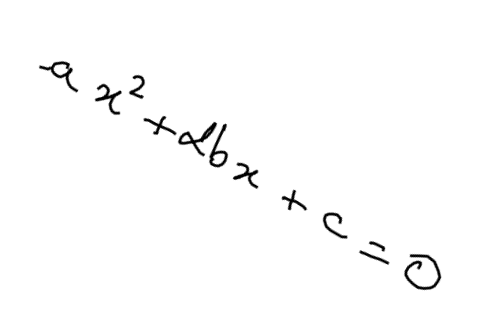 -ax²+αbx+c=0